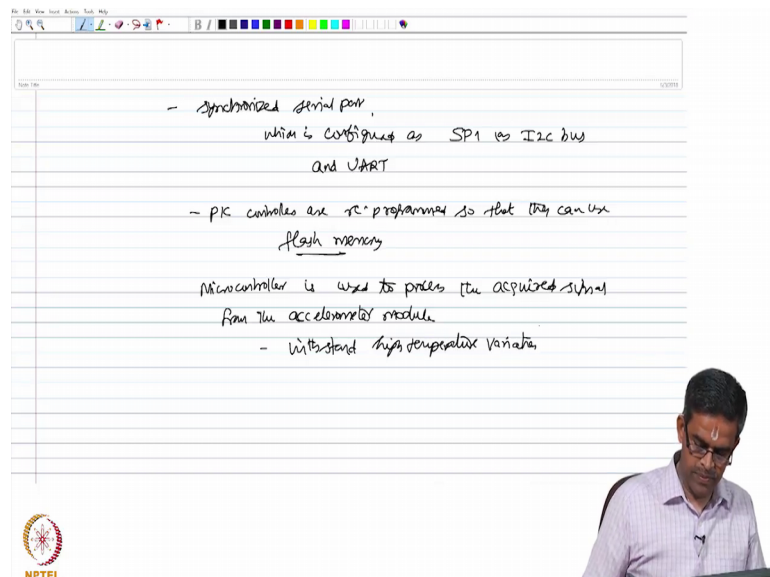 File Edit View Insert Actions Tools Help
B I
Note Title
- synchronized serial port,
which is configured as SP1 or I2C bus
and UART
- PIC controller are re-programmed so that they can use
flash memory
Microcontroller is used to process the acquired signal
from the accelerometer module
- withstand high temperature variation
NPTEL